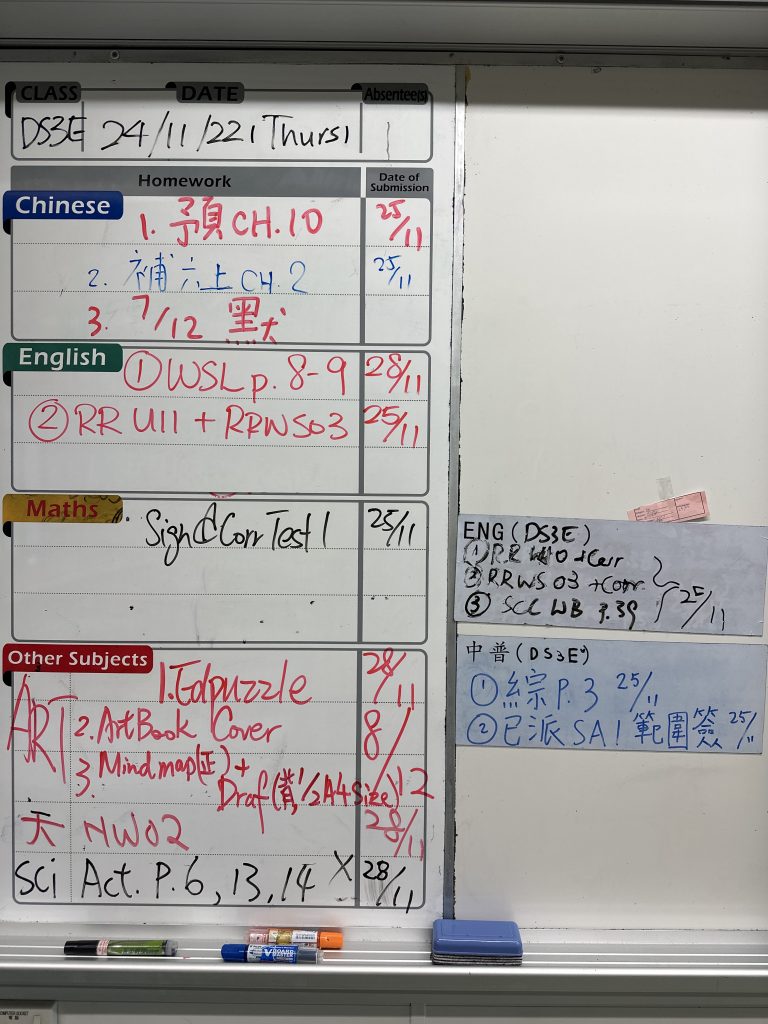 CLASS DATE Absentee(s)
DS3E 24/11/22 Thurs 1
Homework Date of Submission
Chinese
1. 預 CH.10 25/11
2. 補六上 CH.2 25/11
3. 7/12 默
English
① WSL p. 8-9 28/11
② RR U11 + RRWS03 25/11
Maths
Sign & Corr Test 1 25/11
Other Subjects
ART
1. Edpuzzle 28/11
2. ArtBook Cover 8/12
3. Mindmap(正) +
Draf(背, 1/2 A4 size)
天 NW02 28/11
Sci Act. P.6, 13, 14 X 28/11
ENG (DS3E)
① RR U10 + Corr
② RRWS 03 + Corr
③ SCC WB P.39
25/11
中普 (DS3E)
① 綜 P.3 25/11
② 已派 SA1 範圍簽 25/11